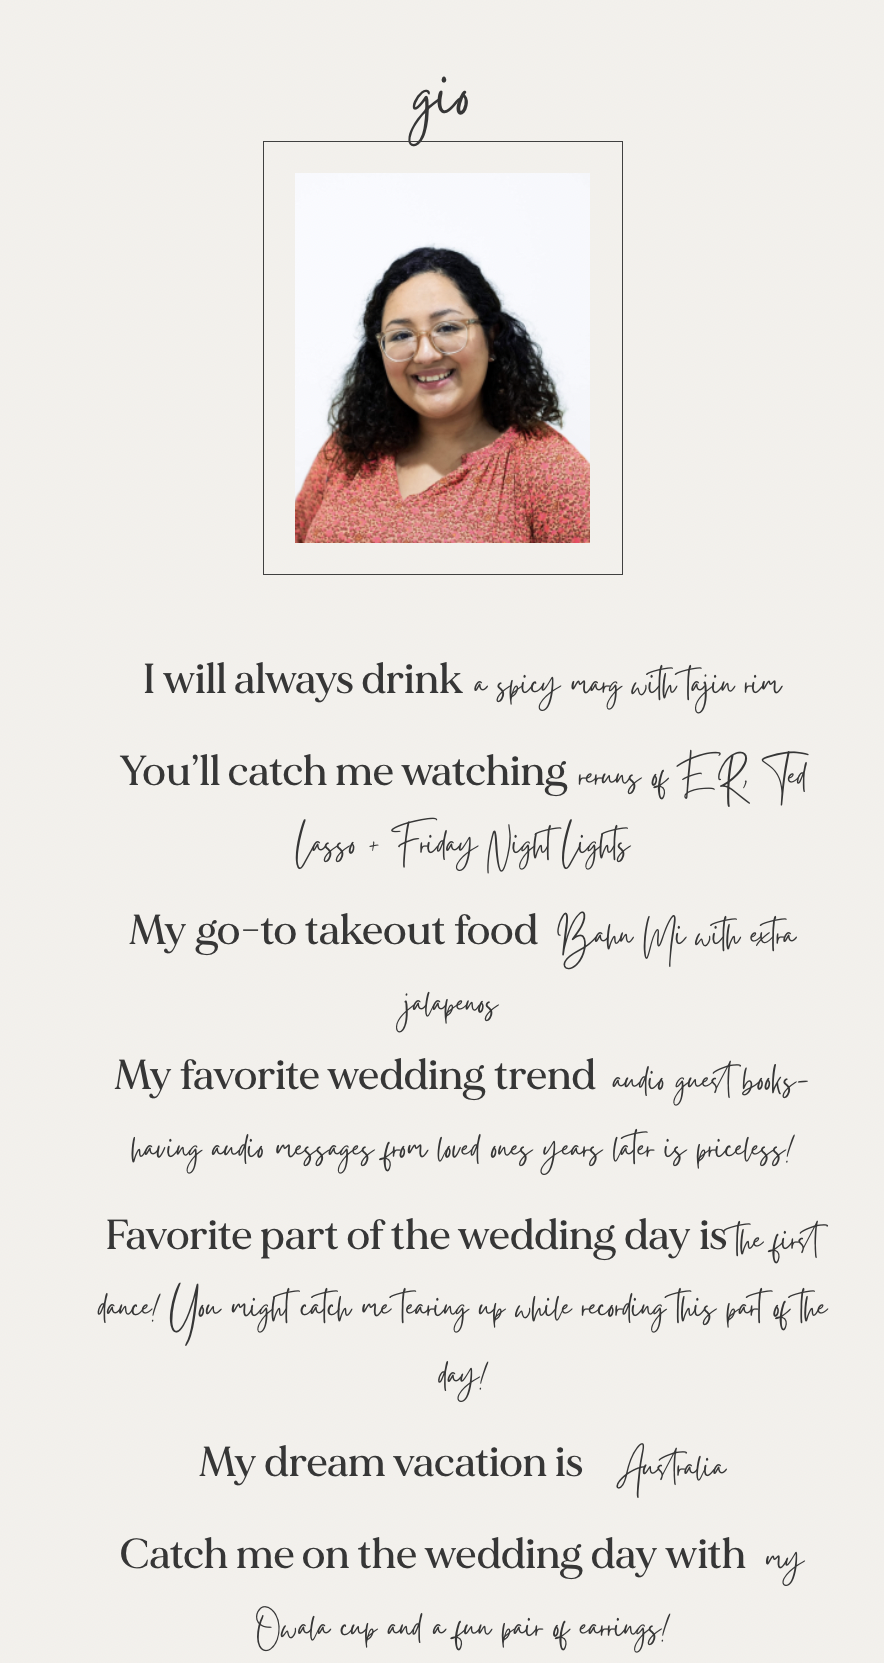 gio
I will always drink a spicy marg with tajin rim
You’ll catch me watching reruns of ER, Ted
Lasso + Friday Night Lights
My go-to takeout food Bahn Mi with extra
jalapenos
My favorite wedding trend audio guest books-
having audio messages from loved ones years later is priceless!
Favorite part of the wedding day is the first
dance! You might catch me tearing up while recording this part of the
day!
My dream vacation is Australia
Catch me on the wedding day with my
Owala cup and a fun pair of earrings!